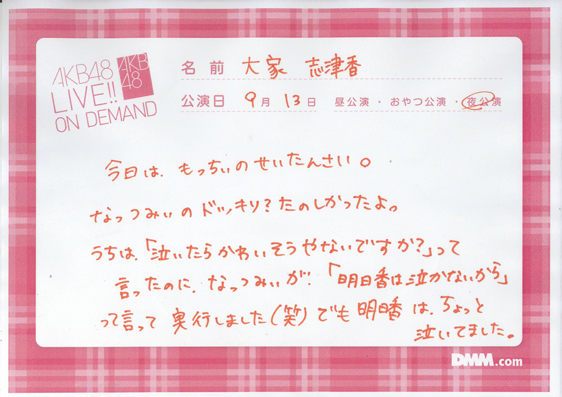 AKB48
LIVE!!
ON DEMAND
AKB
48
名前 大家 志津香
公演日 9月 13日 昼公演・おやつ公演・夜公演
今日は、もっちぃのせいたんさい。
なっつみぃのドッキリ?たのしかったよっ
うちは、「泣いたらかわいそうやないですか?」って
言ったのに、なっつみぃが、「明日香は泣かないから」
って言って 実行しました(笑)でも明日香は、ちょっと
泣いてました。
DMM.com